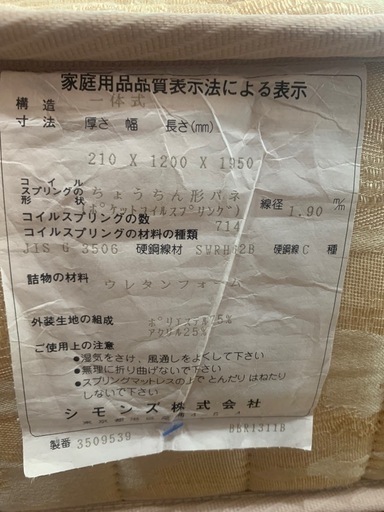 家庭用品品質表示法による表示
構造 一体式
寸法 厚さ 幅 長さ(mm)
210 X 1200 X 1950
コイル
スプリングの ちょうちん形バネ 線径 1.90 m/m
形状 (ポケットコイルスプリング)
コイルスプリングの数 714
コイルスプリングの材料の種類
JIS G 3506 硬鋼線材 SWRH82B 硬鋼線C 種
詰物の材料
ウレタンフォーム
外装生地の組成 ポリエステル75%
アクリル25%
ご使用上の注意
●湿気をさけ、風通しをよくして下さい
●無理に折り曲げないで下さい
●スプリングマットレスの上で とんだり はねたり
しないで下さい
シモンズ株式会社
東京都
製番 3509539 BBR1311B